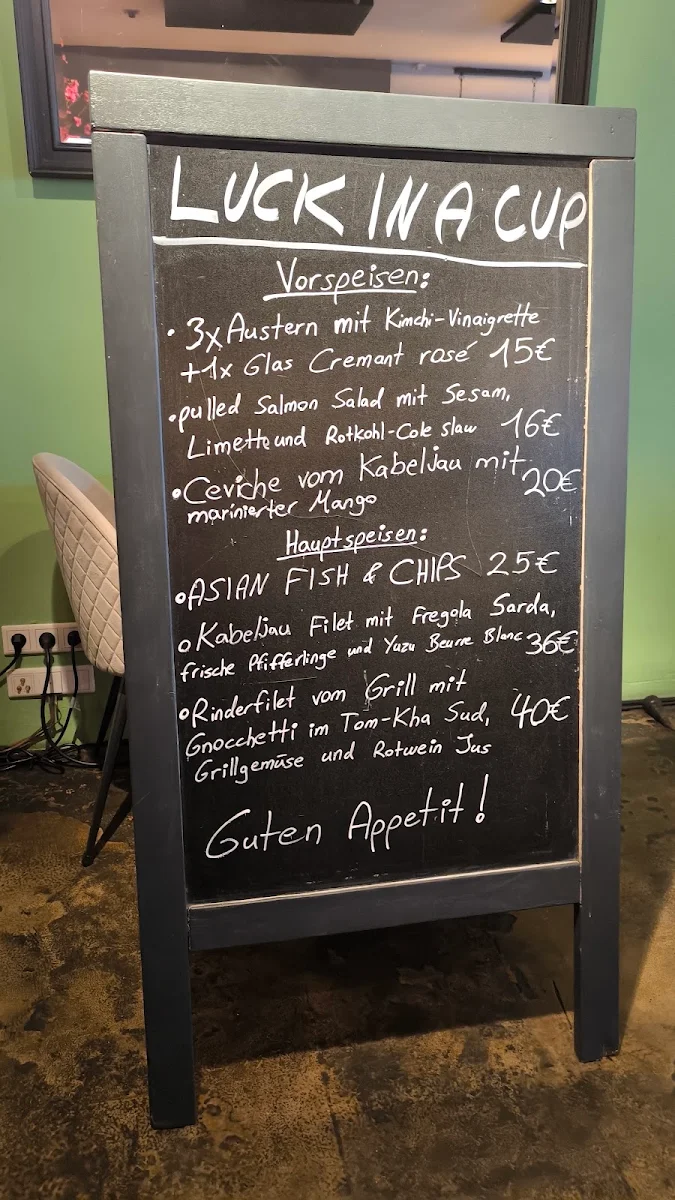 LUCK IN A CUP
Vorspeisen:
• 3x Austern mit Kimchi-Vinaigrette
+1x Glas Cremant rosé 15€
• pulled Salmon Salad mit Sesam,
Limette und Rotkohl-Cole slaw 16€
• Ceviche vom Kabeljau mit 20€
marinierter Mango
Hauptspeisen:
• ASIAN FISH & CHIPS 25€
• Kabeljau Filet mit Fregola Sarda,
frische Pfifferlinge und Yuzu Beurre Blanc 36€
• Rinderfilet vom Grill mit
Gnocchetti im Tom-Kha Sud, 40€
Grillgemüse und Rotwein Jus
Guten Appetit!